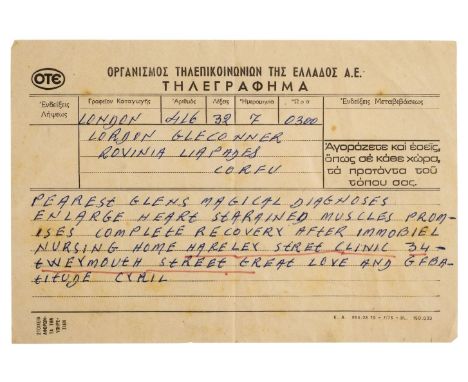 ΟΤΕ
ΟΡΓΑΝΙΣΜΟΣ ΤΗΛΕΠΙΚΟΙΝΩΝΙΩΝ ΤΗΣ ΕΛΛΑΔΟΣ Α.Ε.
ΤΗΛΕΓΡΑΦΗΜΑ
Ἐνδείξεις Λήψεως
Γραφεῖον Καταγωγῆς Ἀριθμὸς Λέξεις Ἡμερομηνία Ὥρα
Ἐνδείξεις Μεταβιβάσεως
LONDON 416 32 7 0300
LORDON GLECONNER
ROVINIA LIAPADES
CORFU
Ἀγοράζετε καὶ ἐσεῖς,
ὅπως σὲ κάθε χώρα,
τὰ προϊόντα τοῦ
τόπου σας.
PEAREST GLENS MAGICAL DIAGNOSES
ENLARGE HEART STARAINED MUSCLES PROM-
ISES COMPLETE RECOVERY AFTER IMMOBIEL
NURSING HOME HARELEY STRET CLINIC 34-
TWEYMOUTH STREET GREAT LOVE AND GFBA-
TITUDE CYRIL